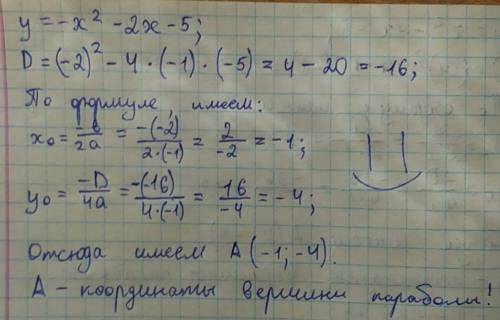 y = -x² - 2x - 5;
D = (-2)² - 4 · (-1) · (-5) = 4 - 20 = -16;
По формуле, имеем:
x₀ = -b/2a = -(-2)/2·(-1) = 2/-2 = -1;
y₀ = -D/4a = -(-16)/4·(-1) = 16/-4 = -4;
Отсюда имеем A(-1; -4).
A - координаты вершини параболы!